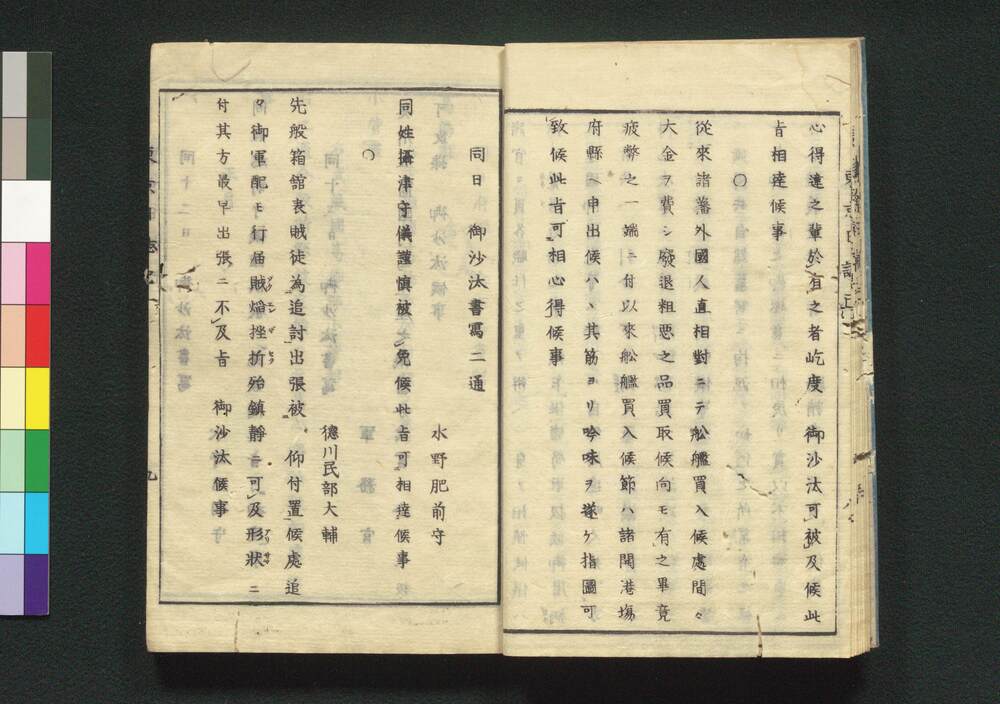 心得違之輩於有之者屹度御沙汰可被及候此
旨相達候事
〇
從來諸藩外國人直相對ニテ舩艦買入候處間々
大金ヲ費シ廢退粗悪之品買取候向モ有之畢竟
疲弊之一端ニ付以來舩艦買入候節ハ諸開港塲
府縣ヘ申出候ハヽ其筋ヨリ吟味ヲ遂ケ指圖可
致候此旨可相心得候事
同日 御沙汰書寫二通
水野肥前守
同姓攝津守儀謹慎被 免候此旨可相達候事
〇
德川民部大輔
先般箱館表賊徒為追討出張被 仰付置候處追
々御軍配モ行届賊焔挫折殆鎮靜ニ可及形狀ニ
付其方最早出張ニ不及旨 御沙汰候事